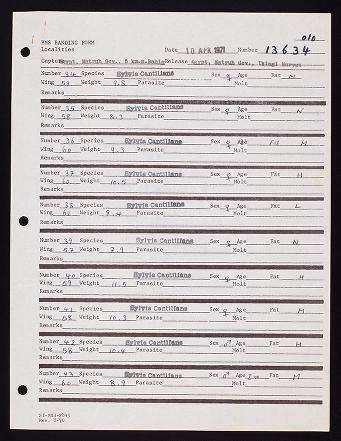 010
EMS BANDING FORM
Localities Date 10 APR 1971 Number 13634
Capture Egypt, Matruh Gov., 5 km.s.Bahig Release Egypt, Matruh Gov.,
Number 34 Species Sylvia Cantillans Sex ♀ Age Fat M
Wing 59 Weight 9.8 Parasite Molt
Remarks
Number 35 Species Sylvia Cantillans Sex ♀ Age Fat N
Wing 58 Weight 8.3 Parasite Molt
Remarks
Number 36 Species Sylvia Cantillans Sex ♀ Age Fat M
Wing 60 Weight 9.3 Parasite Molt
Remarks
Number 37 Species Sylvia Cantillans Sex ♀ Age Fat H
Wing 60 Weight 10.5 Parasite Molt
Remarks
Number 38 Species Sylvia Cantillans Sex ♀ Age Fat L
Wing 61 Weight 9.4 Parasite Molt
Remarks
Number 39 Species Sylvia Cantillans Sex ♀ Age Fat N
Wing 57 Weight 7.9 Parasite Molt
Remarks
Number 40 Species Sylvia Cantillans Sex ♀ Age Fat H
Wing 59 Weight 11.5 Parasite Molt
Remarks
Number 41 Species Sylvia Cantillans Sex ♀ Age Fat M
Wing 58 Weight 10.3 Parasite Molt
Remarks
Number 42 Species Sylvia Cantillans Sex ♂ Age Fat H
Wing 58 Weight 10.4 Parasite Molt
Remarks
Number 43 Species Sylvia Cantillans Sex ♂ Age Fat M
Wing 60 Weight 8.9 Parasite Molt
Remarks
Rev. 8-70